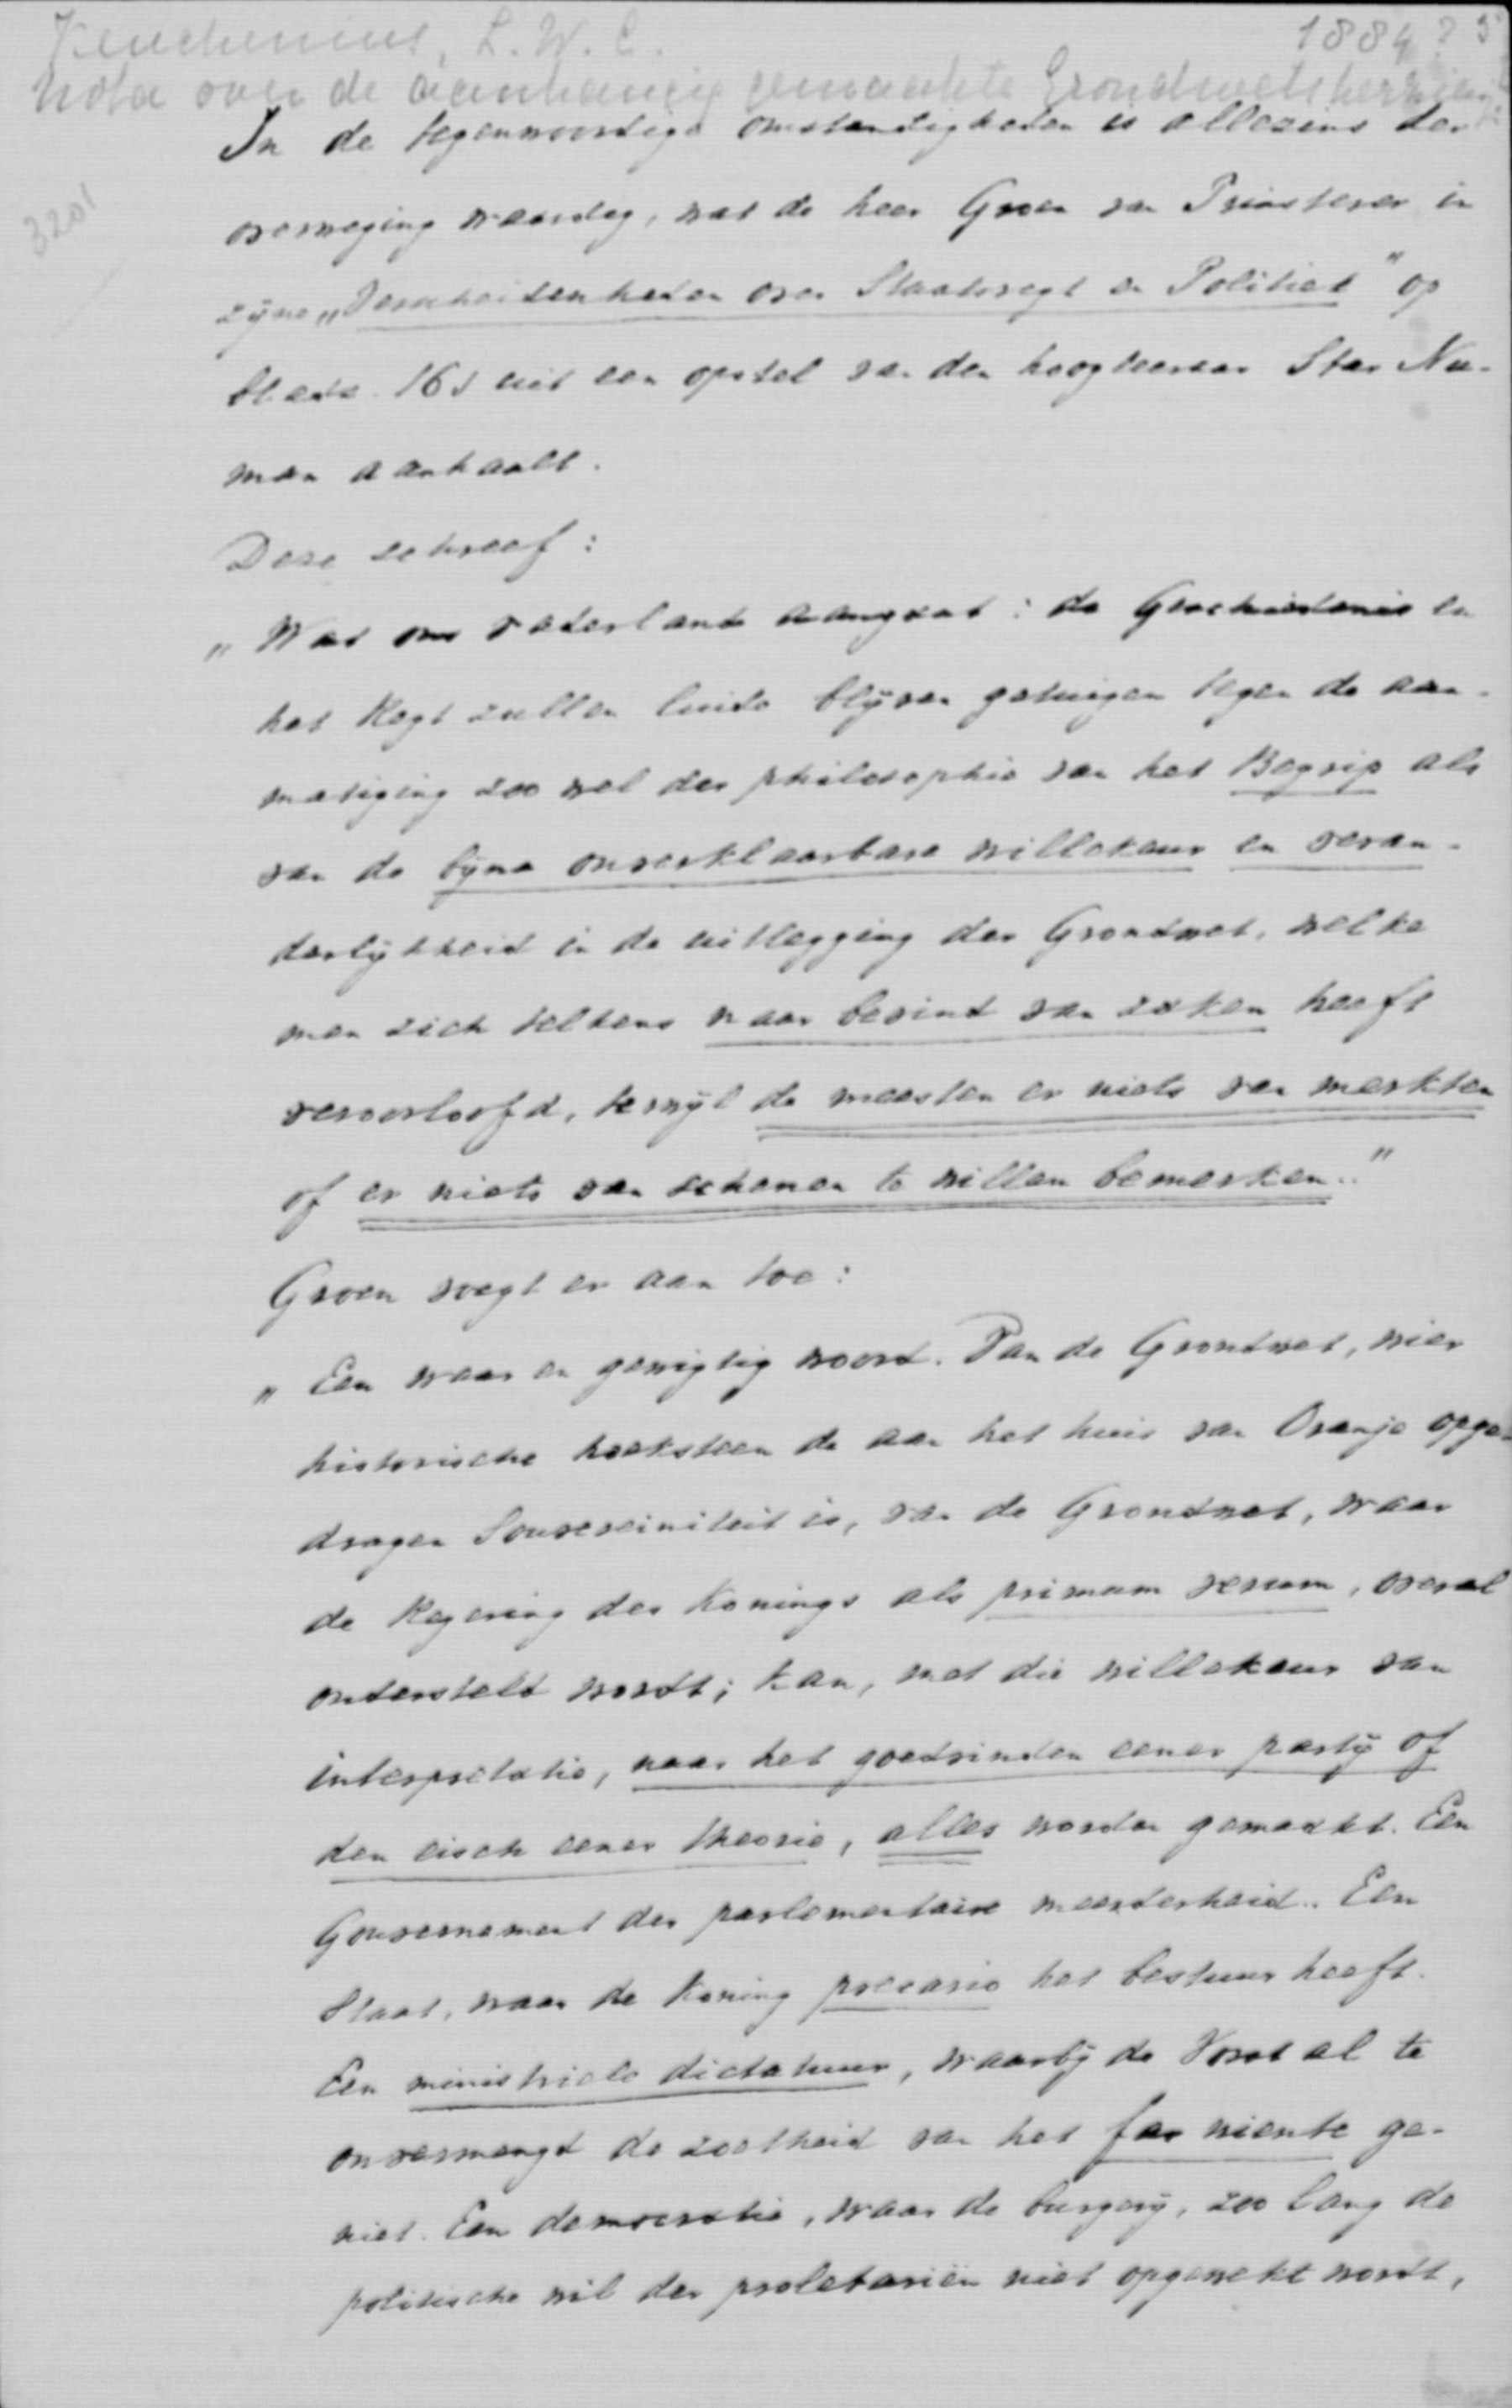 Keuchenius, L. W. C. 1884? 5
Nota over de aanhangig gemaakte Grondwetsherziening
3201
In de tegenwoordige omstandigheden is allezins der
overweging waardig, wat de heer Groen van Prinsterer in
zijne „Verscheidenheden over Staatsregt en Politiek" op
bladz. 161 uit een opstel van den hoogleeraar Star Nu-
man aanhaalt.
Deze schreef:
„Wat ons vaderland aangaat: de Geschiedenis en
het Regt zullen luide blijven getuigen tegen de aan-
matiging zoo wel der philosophie van het Begrip als
van de bijna onverklaarbare willekeur en veran-
derlijkheid in de uitlegging der Grondwet, welke
men zich telkens naar bevind van zaken heeft
veroorloofd, terwijl de meesten er niets van merkten
of er niets van schenen te willen bemerken."
Groen voegt er aan toe:
„Een waar en gewigtig woord. Van de Grondwet, wier
historische hoeksteen de aan het huis van Oranje opge-
dragen Souvereiniteit is, van de Grondwet, waar
de Regering des Konings als primum verum, overal
ondersteld wordt; kan, met die willekeur van
interpretatie, naar het goedvinden eener partij of
den eisch eener theorie, alles worden gemaakt. Een
Gouvernement der parlementaire meerderheid. Een
Staat, waar de Koning precario het bestuur heeft.
Een ministriele dictatuur, waarbij de Vorst al te
onvermengd de zoetheid van het far niente ge-
niet. Een democratie, waar de burgerij, zoo lang de
politische wil der proletariën niet opgewekt wordt,